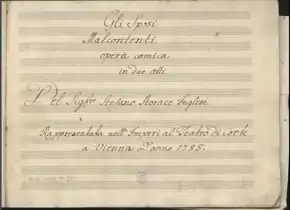 Gli Sposi
Malcontenti
opera comica
in due atti
Del Sigre Stefano Storace Inglese
Rappresentata nell' Imperial Teatro di Corte
a Vienna L'anno 1785.